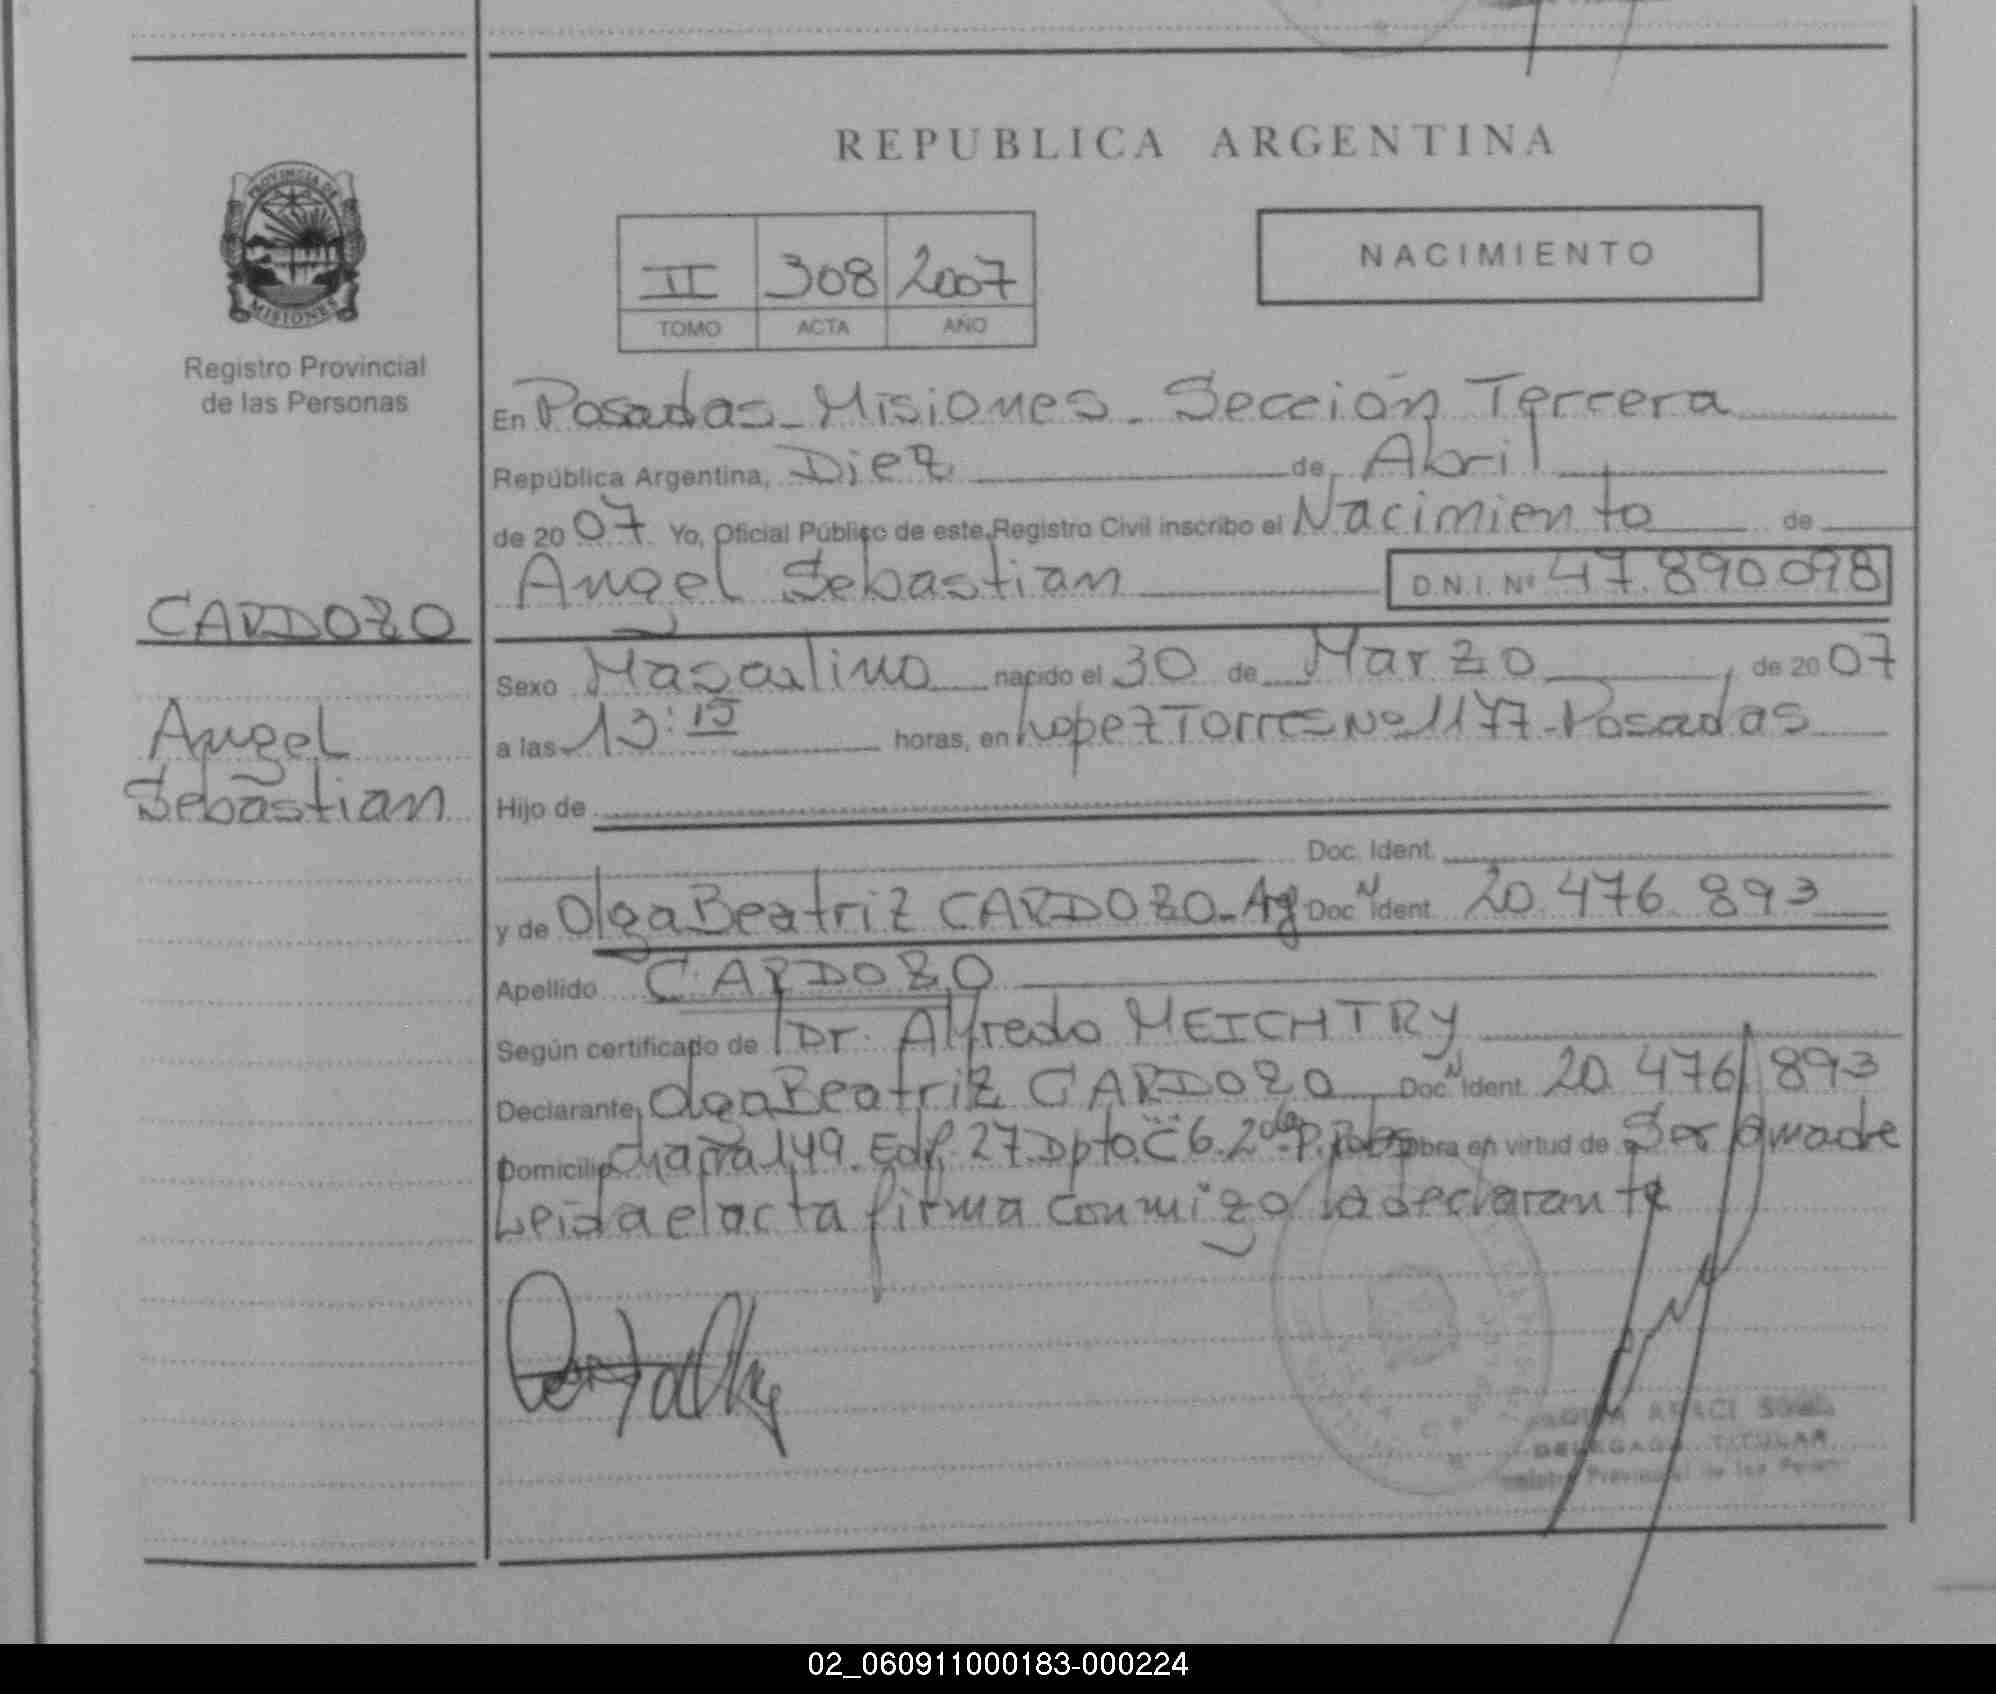 REPUBLICA ARGENTINA
PROVINCIA DE
MISIONES
Registro Provincial
de las Personas
II 308 2007
TOMO ACTA AÑO
NACIMIENTO
En Posadas - Misiones - Sección Tercera
República Argentina, Diez de Abril
de 20 07 Yo, Oficial Público de este Registro Civil inscribo el Nacimiento de
Angel Sebastian D.N.I. Nº 47.890.098
CARDOZO
Angel
Sebastian
Sexo Masculino nacido el 30 de Marzo de 20 07
a las 13:15 horas, en Lopez Torres Nº 1177 - Posadas
Hijo de
Doc. Ident.
y de Olga Beatriz CARDOZO - Ag Doc. Ident. N 20.476.893
Apellido CARDOZO
Según certificado de Dr. Alfredo MEICHTRY
Declarante Olga Beatriz CARDOZO Doc. Ident. N 20.476.893
Domicilio Chacra 149. Edif. 27. Dpto. C 6. 2do P. obra en virtud de Ser madre
Leida el acta firma conmigo la declarante
ARACI
DELEGADA TITULAR
Registro Provincial de las Personas
02_060911000183-000224